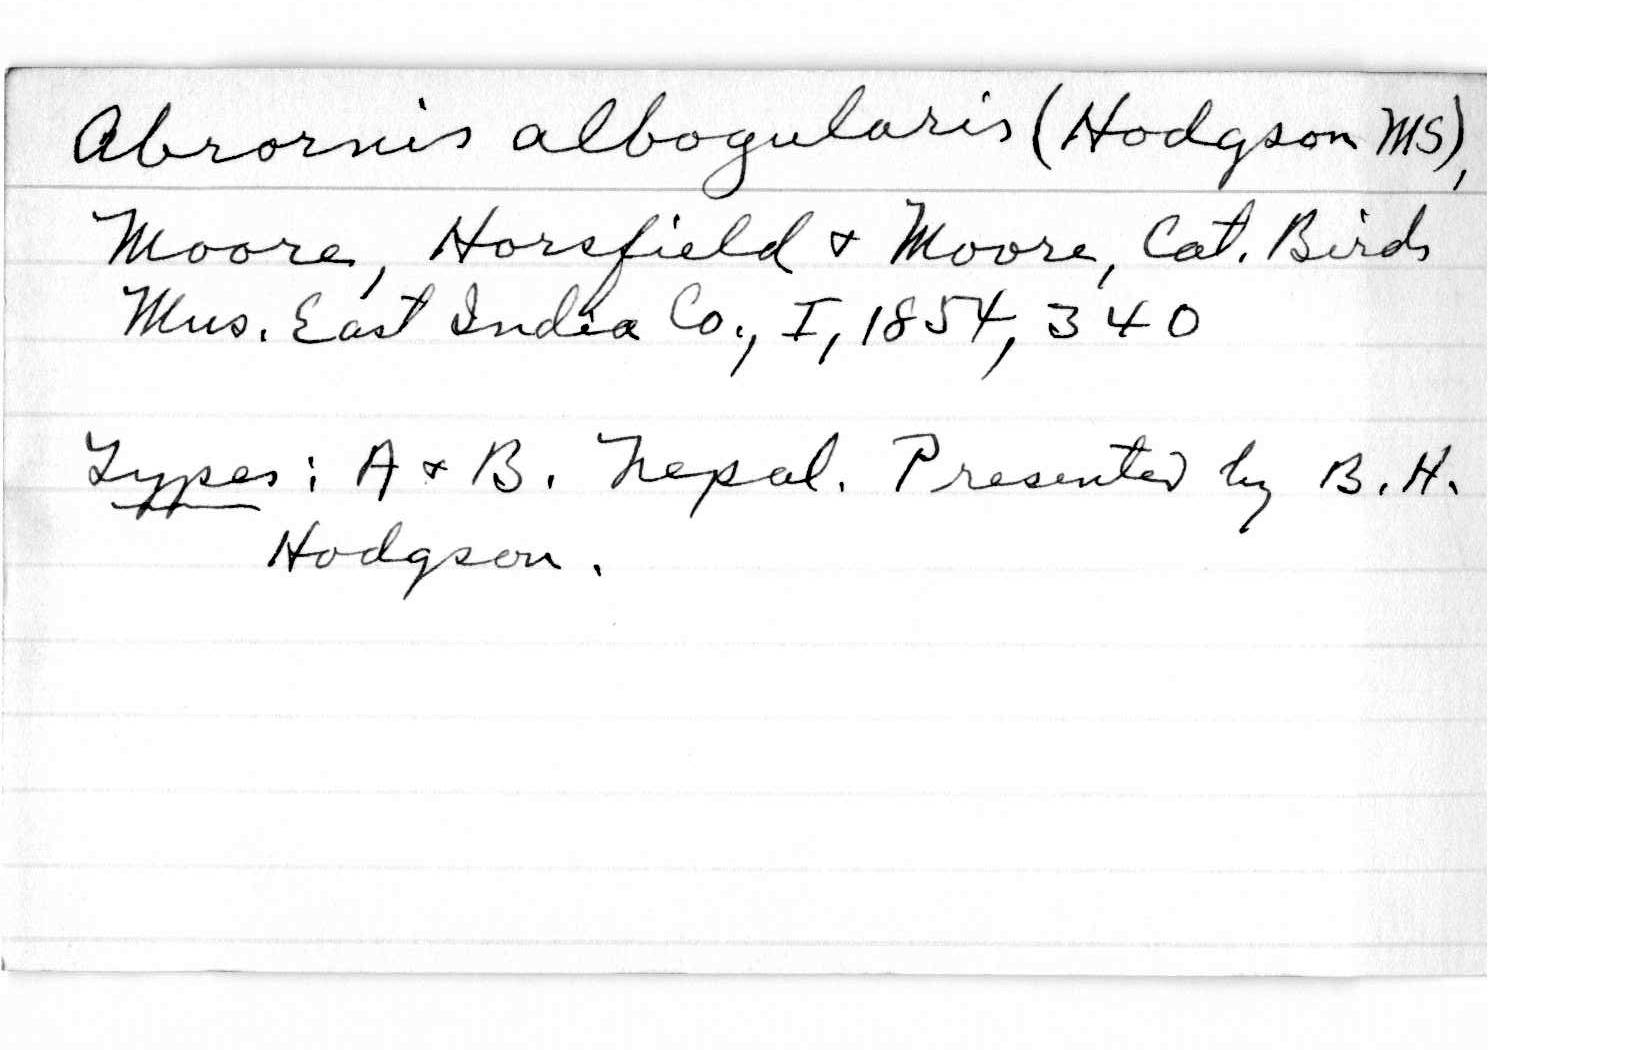 Abrornis albogularis (Hodgson MS),
Moore, Horsfield & Moore, Cat. Birds
Mus. East India Co., I, 1854, 340
Types: A & B. Nepal. Presented by B. H.
Hodgson.